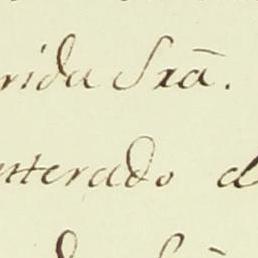 rida Srā.
nterado d